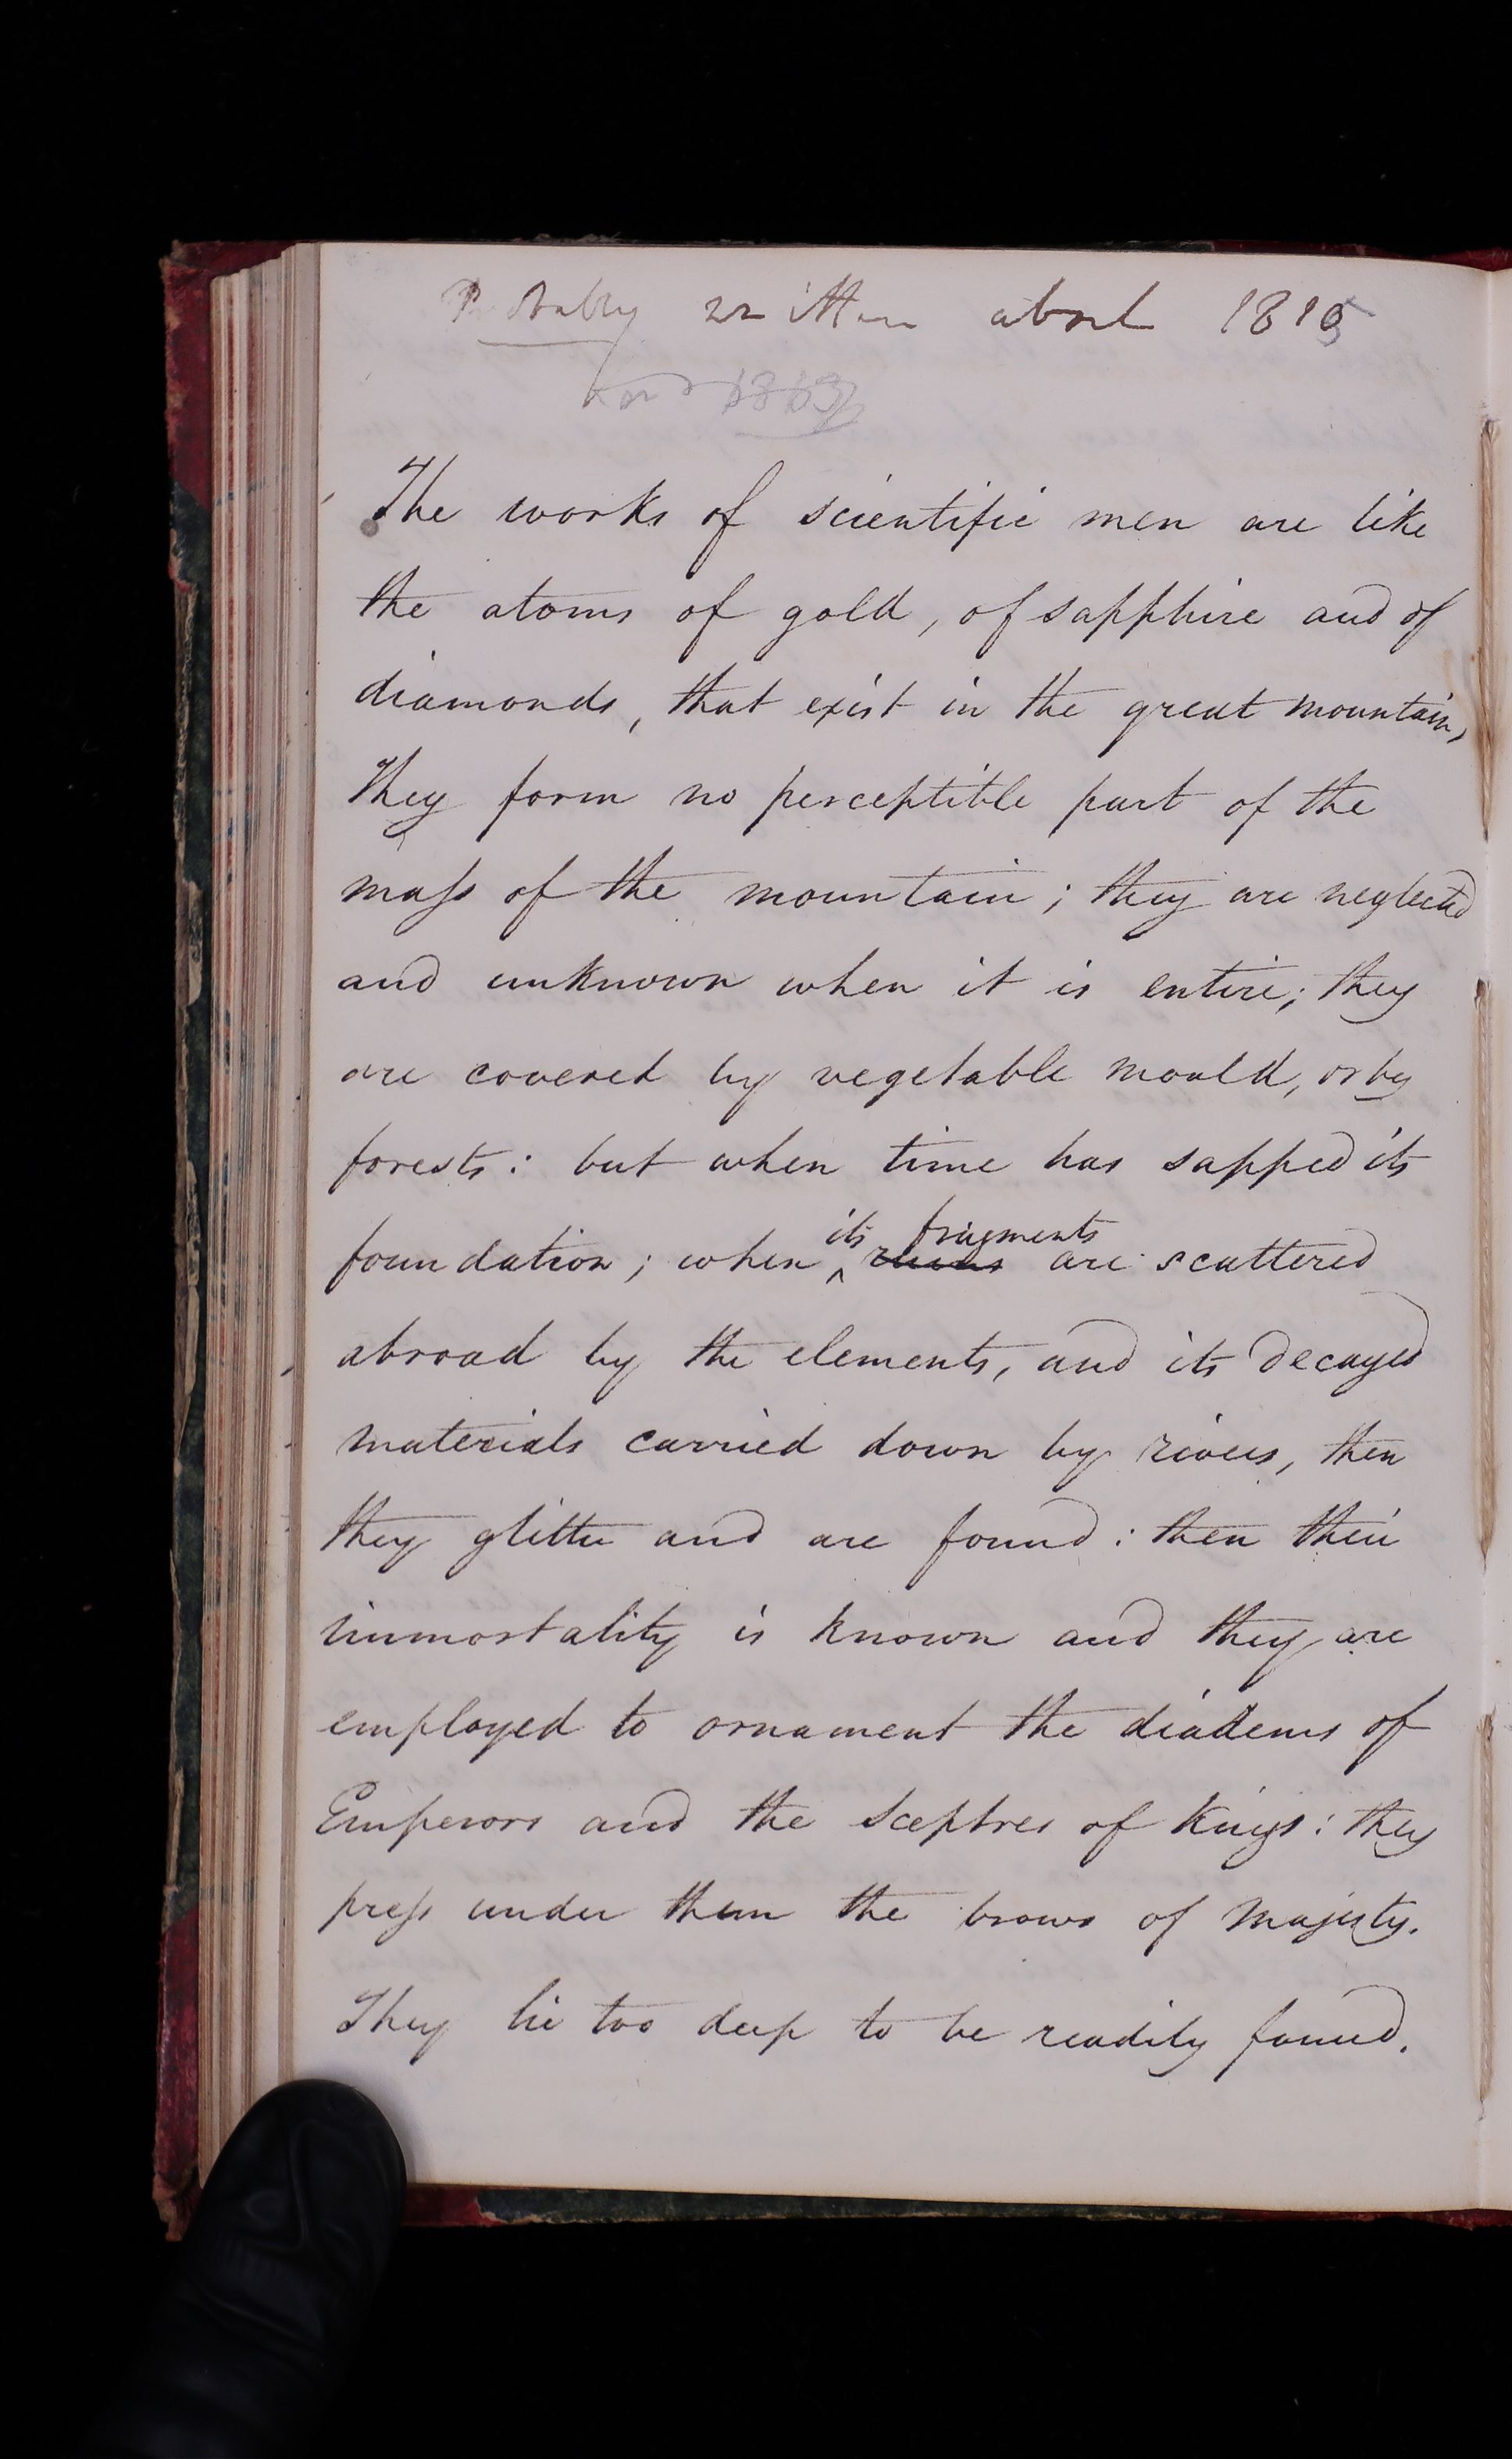 Probably written about 1815
The works of scientific men are like
the atoms of gold, of sapphire and of
diamonds, that exist in the great mountain,
They form no perceptible part of the
mass of the mountain; they are neglected
and unknown when it is entire; they
are covered by vegetable mould, or by
forests: but when time has sapped its
its fragments
foundation; when ^ ruins are scattered
abroad by the elements, and its decayed
materials carried down by rivers, then
they glitter and are found: then their
immortality is known and they are
employed to ornament the diadems of
Emperors and the sceptres of Kings: they
press under them the brows of majesty.
They lie too deep to be readily found.